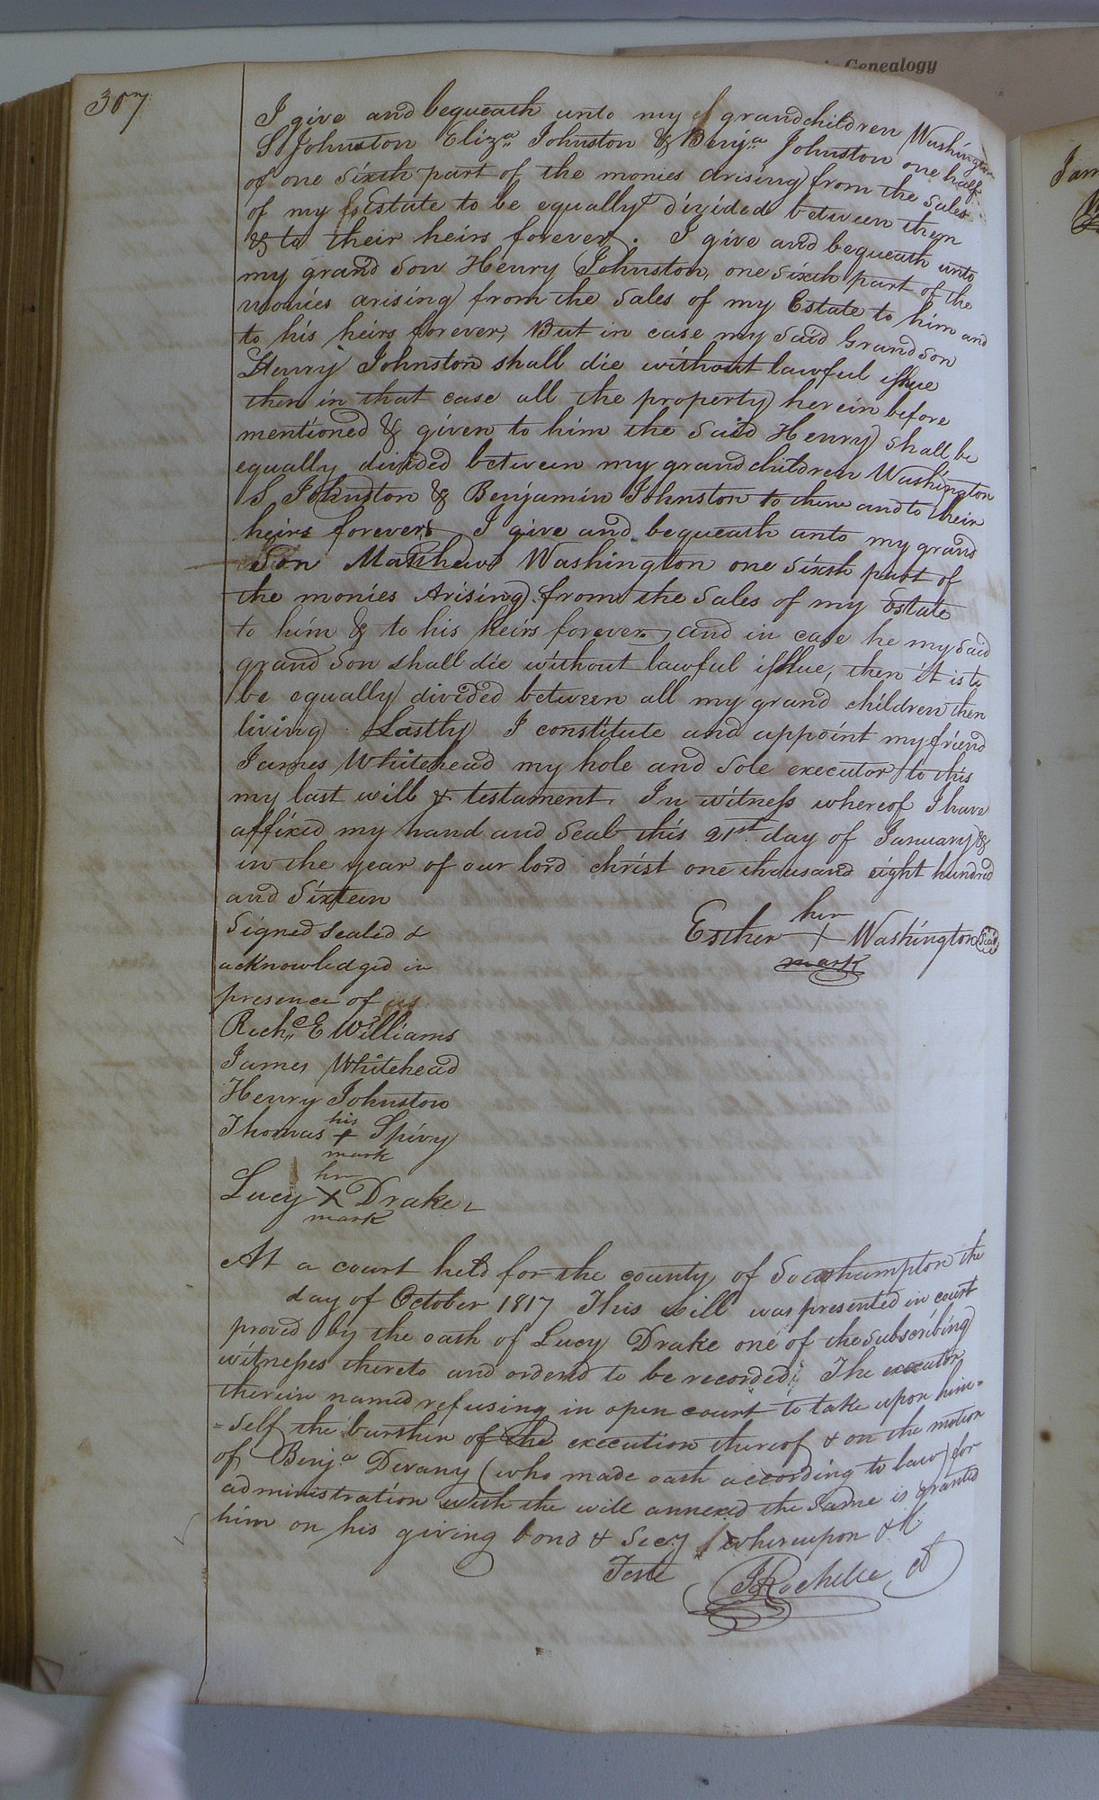 Genealogy
307
I give and bequeath unto my grandchildren Washington
S Johnston Eliza Johnston & Benja Johnston one half
of one sixth part of the monies arising from the Sales
of my Estate to be equally divided between them
& to their heirs forever. I give and bequeath unto
my grand son Henry Johnston, one sixth part of the
monies arising from the Sales of my Estate to him and
to his heirs forever, But in case my said Grandson
Henry Johnston shall die without lawful issue
then in that case all the property herein before
mentioned & given to him the said Henry shall be
equally divided between my grandchildren Washington
S. Johnston & Benjamin Johnston to them and to their
heirs forever I give and bequeath unto my grand
Son Matthew Washington one sixth part of
the monies Arising from the Sales of my Estate
to him & to his heirs forever, and in case he my said
grand Son shall die without lawful issue, then it is to
be equally divided between all my grand children then
living Lastly I constitute and appoint my friend
James Whitehead my hole and Sole executor to this
my last will & testament. In witness whereof I have
affixed my hand and Seal this 21st day of January &
in the year of our lord christ one thousand eight hundred
and Sixteen
Signed sealed &
acknowledged in
presence of us
Esther her + Washington Seal
mark
Richd E Williams
James Whitehead
Henry Johnston
Thomas his + Spivy
mark
Lucy her X Drake
mark
At a court held for the county of Southampton the
day of October 1817 This will was presented in court
proved by the oath of Lucy Drake one of the Subscribing
witnesses thereto and ordered to be recorded; The executor
therein named refusing in open court to take upon him=
=Self the burthen of the execution thereof & on the motion
of Benja Devany (who made oath according to law) for
administration with the will annexed the Same is granted
him on his giving bond & Secy whereupon &c
Teste J Rochelle Ct
Jam